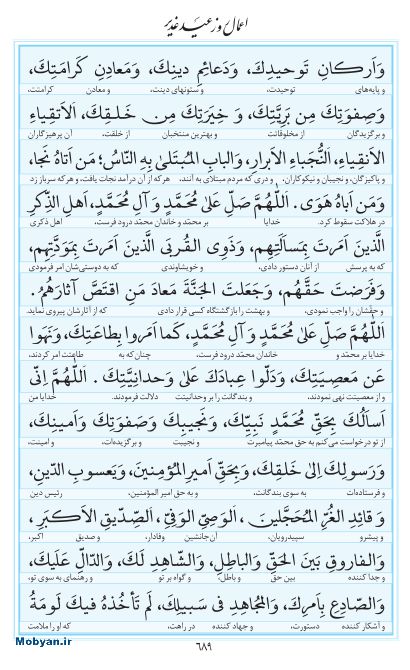 اعمال روز عید غدیر
وَاَرکانِ تَوحیدِكَ، وَدَعائِمِ دینِكَ، وَمَعادِنِ کَرامَتِكَ،
و پایه‌های توحیدت، و ستونهای دینت، و معادن کرامتت،
وَصِفوَتِكَ مِن بَرِیَّتِكَ، وَ خِیَرَتِكَ مِن خَلقِكَ، اَلاَتقِیاءِ
و برگزیدگان از مخلوقاتت و بهترین منتخبان از خلقت، آن پرهیزگاران
الاَنقِیاءِ، النُّجَباءِ الاَبرارِ، وَالبابِ المُبتَلیٰ بِهِ النّاسُ؛ مَن اَتاهُ نَجا،
و پاکیزگان، و نجیبان و نیکوکاران، و دری که مردم مبتلای به آنند. هر که از آن درآمد نجات یافت، و هر که سرباز زد
وَمَن اَباهُ هَویٰ. اَللّٰهُمَّ صَلِّ عَلیٰ مُحَمَّدٍ وَ آلِ مُحَمَّدٍ، اَهلِ الذِّکرِ
در هلاکت سقوط کرد. خدایا بر محمّد و خاندان محمّد درود فرست. اهل ذکری
الَّذینَ اَمَرتَ بِمَساَلَتِهِم، وَذَوِی القُربَی الَّذینَ اَمَرتَ بِمَوَدَّتِهِم،
که به پرسش از آنان دستور دادی، و خویشاوندی که به دوستی‌شان امر فرمودی
وَفَرَضتَ حَقَّهُم، وَجَعَلتَ الجَنَّةَ مَعادَ مَنِ اقتَصَّ آثارَهُم.
و حقّشان را واجب نمودی، و بهشت را بازگشتگاه کسی قرار دادی که از آثارشان پیروی نماید.
اَللّٰهُمَّ صَلِّ عَلیٰ مُحَمَّدٍ وَ آلِ مُحَمَّدٍ، کَما اَمَروا بِطاعَتِكَ، وَنَهَوا
خدایا بر محمّد و خاندان محمّد درود فرست، چنان‌که به طاعتت امر کردند،
عَن مَعصِیَتِكَ، وَدَلّوا عِبادَكَ عَلیٰ وَحدانِیَّتِكَ. اَللّٰهُمَّ اِنّی
و از معصیتت نهی نمودند، و بندگانت را بر وحدانیتت دلالت فرمودند. خدایا من
اَساَلُكَ بِحَقِّ مُحَمَّدٍ نَبِیِّكَ، وَنَجیبِكَ وَصَفوَتِكَ وَاَمینِكَ،
از تو درخواست می‌کنم به حق محمّد پیامبرت و نجیبت و برگزیده‌ات، و امینت،
وَرَسولِكَ اِلیٰ خَلقِكَ، وَبِحَقِّ اَمیرِ المُؤمِنینَ، وَیَعسوبِ الدّینِ،
و فرستاده‌ات به سوی بندگانت، و به حق امیر المؤمنین، رئیس دین
وَ قائِدِ الغُرِّ المُحَجَّلینَ، اَلوَصِیِّ الوَفِیِّ، اَلصِّدّیقِ الاَکبَرِ،
و پیشرو سپیدرویان، آن جانشین وفادار، و صدیق اکبر،
وَالفاروقِ بَینَ الحَقِّ وَالباطِلِ، وَالشّاهِدِ لَكَ، وَالدّالِّ عَلَیكَ،
و جدا کننده بین حق و باطل، و گواه بر تو و رهنمای به سوی تو،
وَالصّادِعِ بِاَمرِكَ، وَالمُجاهِدِ فی سَبیلِكَ، لَم تَأخُذهُ فیكَ لَومَةُ
و آشکار کننده دستورت، و جهاد کننده در راهت، که او را ملامت
Mobyan.ir
۶۸۹